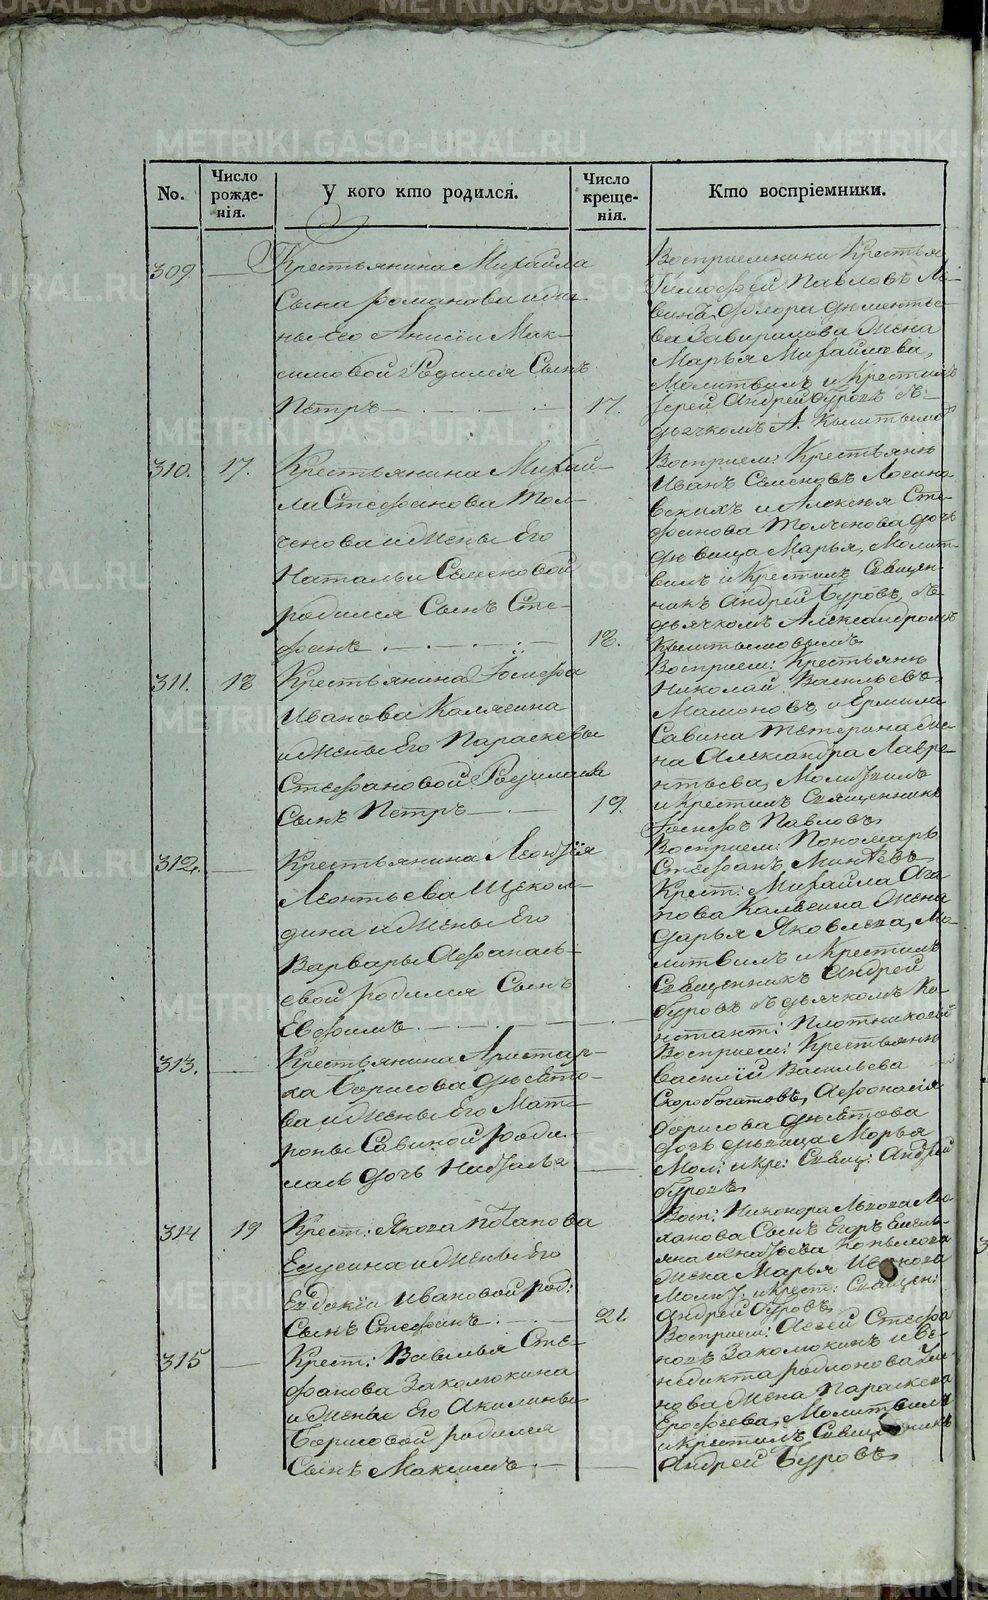 No.
Число рожде-нія.
У кого кто родился.
Число креще-нія.
Кто воспріемники.
309
Крестьянина Михаила
Сына романова и же-
ны его Анисіи Мак-
симовой Родился Сынъ
Петръ
17.
Восприемники Крестья
Тимофей Павловъ
Марья Михайлова,
Молитвилъ и Крестилъ
Іерей Андрей Буровъ съ
дьячкомъ А. Кыштымов
310.
17.
Крестьянина Михай-
ла Стефанова Тол-
ченова и жены Его
Натальи Семеновой
родился Сынъ Сте-
фанъ
18.
Восприем: Крестьянъ
Иванъ Семеновъ Лосино
вскихъ и Алексья Сте-
фанова Толченова дочь
дѣвица Марья, Молит-
вилъ и Крестилъ Священ-
никъ Андрей Буровъ, съ
дьячкомъ Александромъ
Кыштымовымъ
311.
18
Крестьянина Іосифа
Иванова Калягина
и жены Его Параскевы
Стефановой Родился
Сынъ Петръ
19.
Восприем: Крестьянъ
Николай Васильевъ
Мамоновъ и Ермила
Савина Тетерина же-
на Александра Лавре-
нтьева, Молитвилъ
и Крестилъ Священникъ
Іосифъ Павловъ
312.
Крестьянина Леонтія
Леонтьева Щекол-
дина и жены Его
Варвары Афанась-
евой родился Сынъ
Ефимъ
Восприем: Пономарь
Стефанъ Минѣевъ
Крест: Михайла Ага
пова Калягина жена
Дарья Яковлева, Мо-
литвилъ и крестилъ
Священникъ Андрей
Буровъ съ дьячкомъ Ко-
нстант: Плотниковым
313.
Крестьянина Аристар-
ха Борисова Дѣѣтто-
ва и жены Его Мат-
роны Савиной роди-
лась дочь Наталья
Восприем: Крестьянъ
Василій Васильева
Скоробогатовъ, Афонасія
Борисова
дочь дѣвица Марья
Мол: и кре: Свящ: Андрей
Буровъ
314
19
Крест: Якова Потапова
Елусина и жены Его
Евдокіи Ивановой род:
Сынъ Стефанъ
21.
Восп: Никонора Львова
ханова Сынъ Егоръ Емель
яна Игнатьева Копылова
жена Марья Иванова
Молит. и крест: Священ:
Андрей Буровъ
315
Крест: Вавилья Сте-
фанова Закомокина
и жены Его Акилины
Борисовой родился
Сынъ Максимъ
Восприем: Агей Стефа
новъ Закомокинъ и Ве-
недикта родионова
жена Параскева
Ерофеева, Молитвилъ
и крестилъ Священникъ
Андрей Буровъ
METRIKI.GASO-URAL.RU